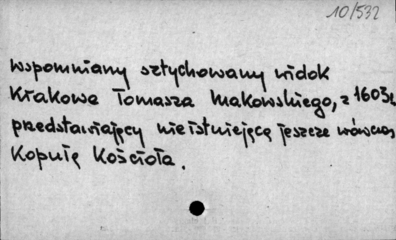 10/532
wspomniany sztychowany widok
Krakowa Tomasza Makowskiego, z 1603r
przedstawiający nieistniejącą jeszcze wówczas
Kopułę Kościoła.